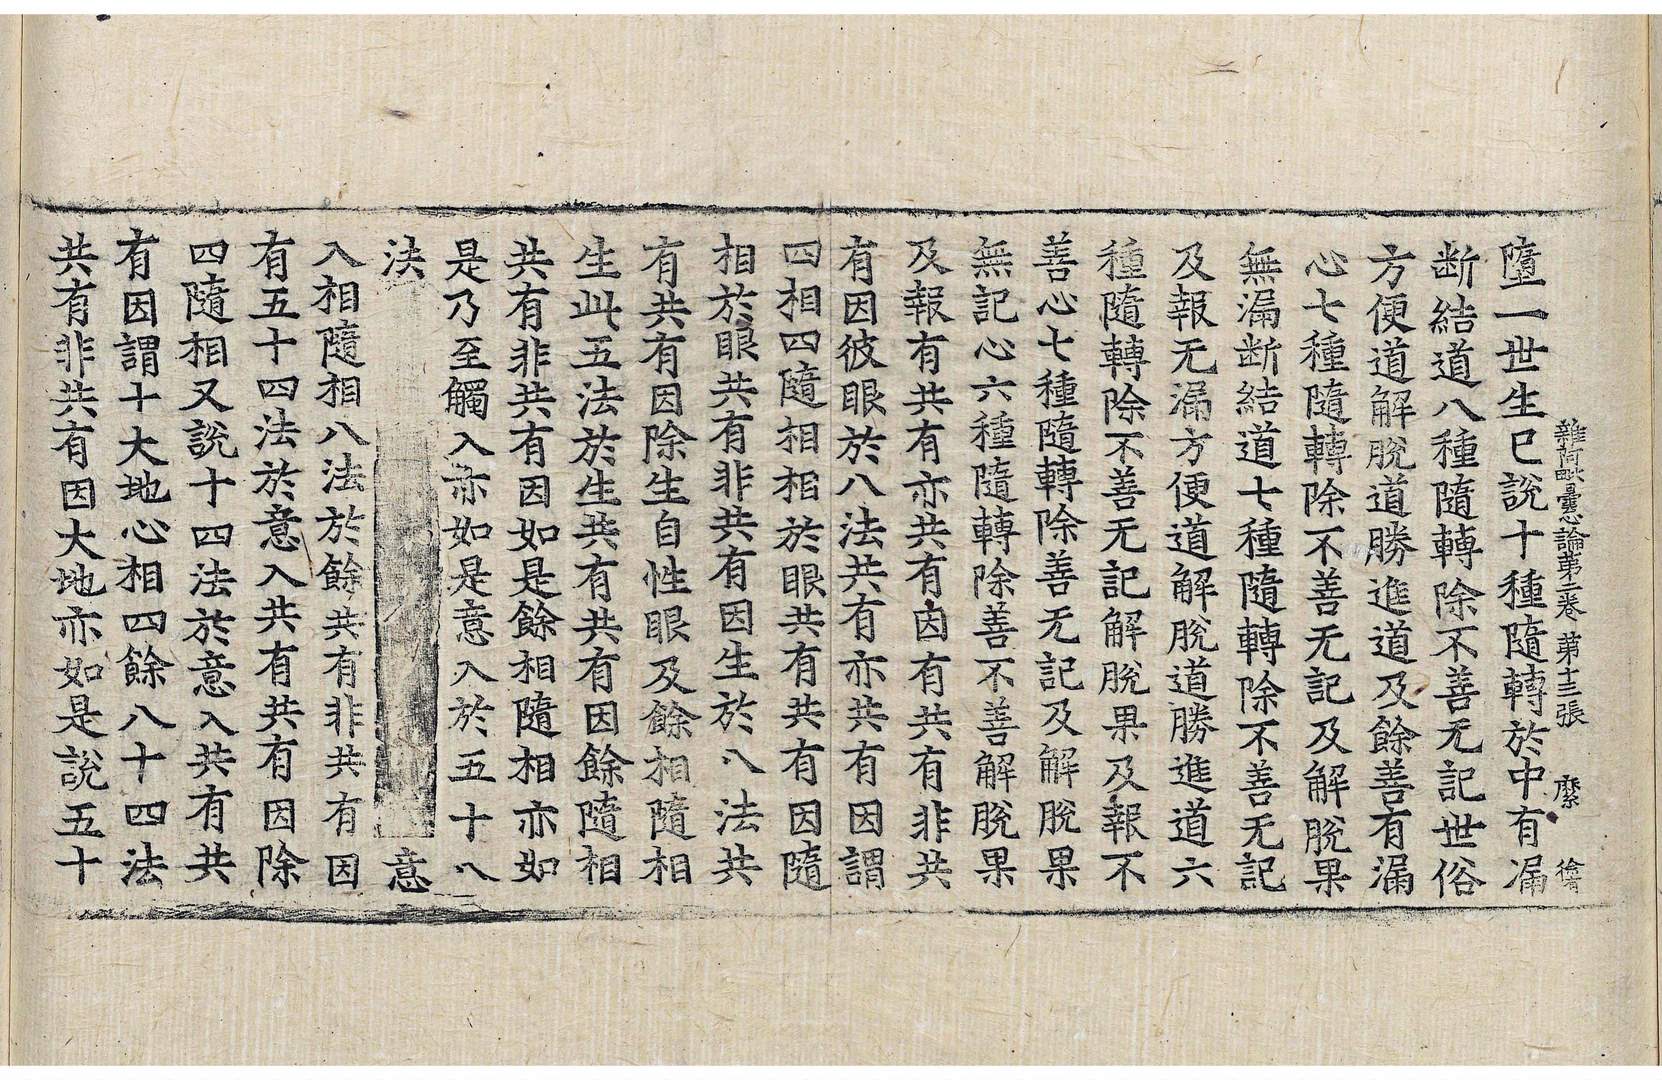 雜阿毗曇心論第二卷 第十三張 縻
墮一世生已說十種隨轉於中有漏
断結道八種隨轉除不善无記世俗
方便道解脫道勝進道及餘善有漏
心七種隨轉除不善无記及解脫果
無漏断結道七種隨轉除不善无記
及報无漏方便道解脫道勝進道六
種隨轉除不善无記解脫果及報不
善心七種隨轉除善无記及解脫果
無記心六種隨轉除善不善解脫果
及報有共有亦共有因有共有非共
有因彼眼於八法共有亦共有因謂
四相四隨相相於眼共有共有因隨
相於眼共有非共有因生於八法共
有共有因除生自性眼及餘相隨相
生此五法於生共有共有因餘隨相
共有非共有因如是餘相隨相亦如
是乃至觸入亦如是意入於五十八
法 意
入相隨相八法於餘共有非共有因
有五十四法於意入共有共有因除
四隨相又說十四法於意入共有共
有因謂十大地心相四餘八十四法
共有非共有因大地亦如是說五十